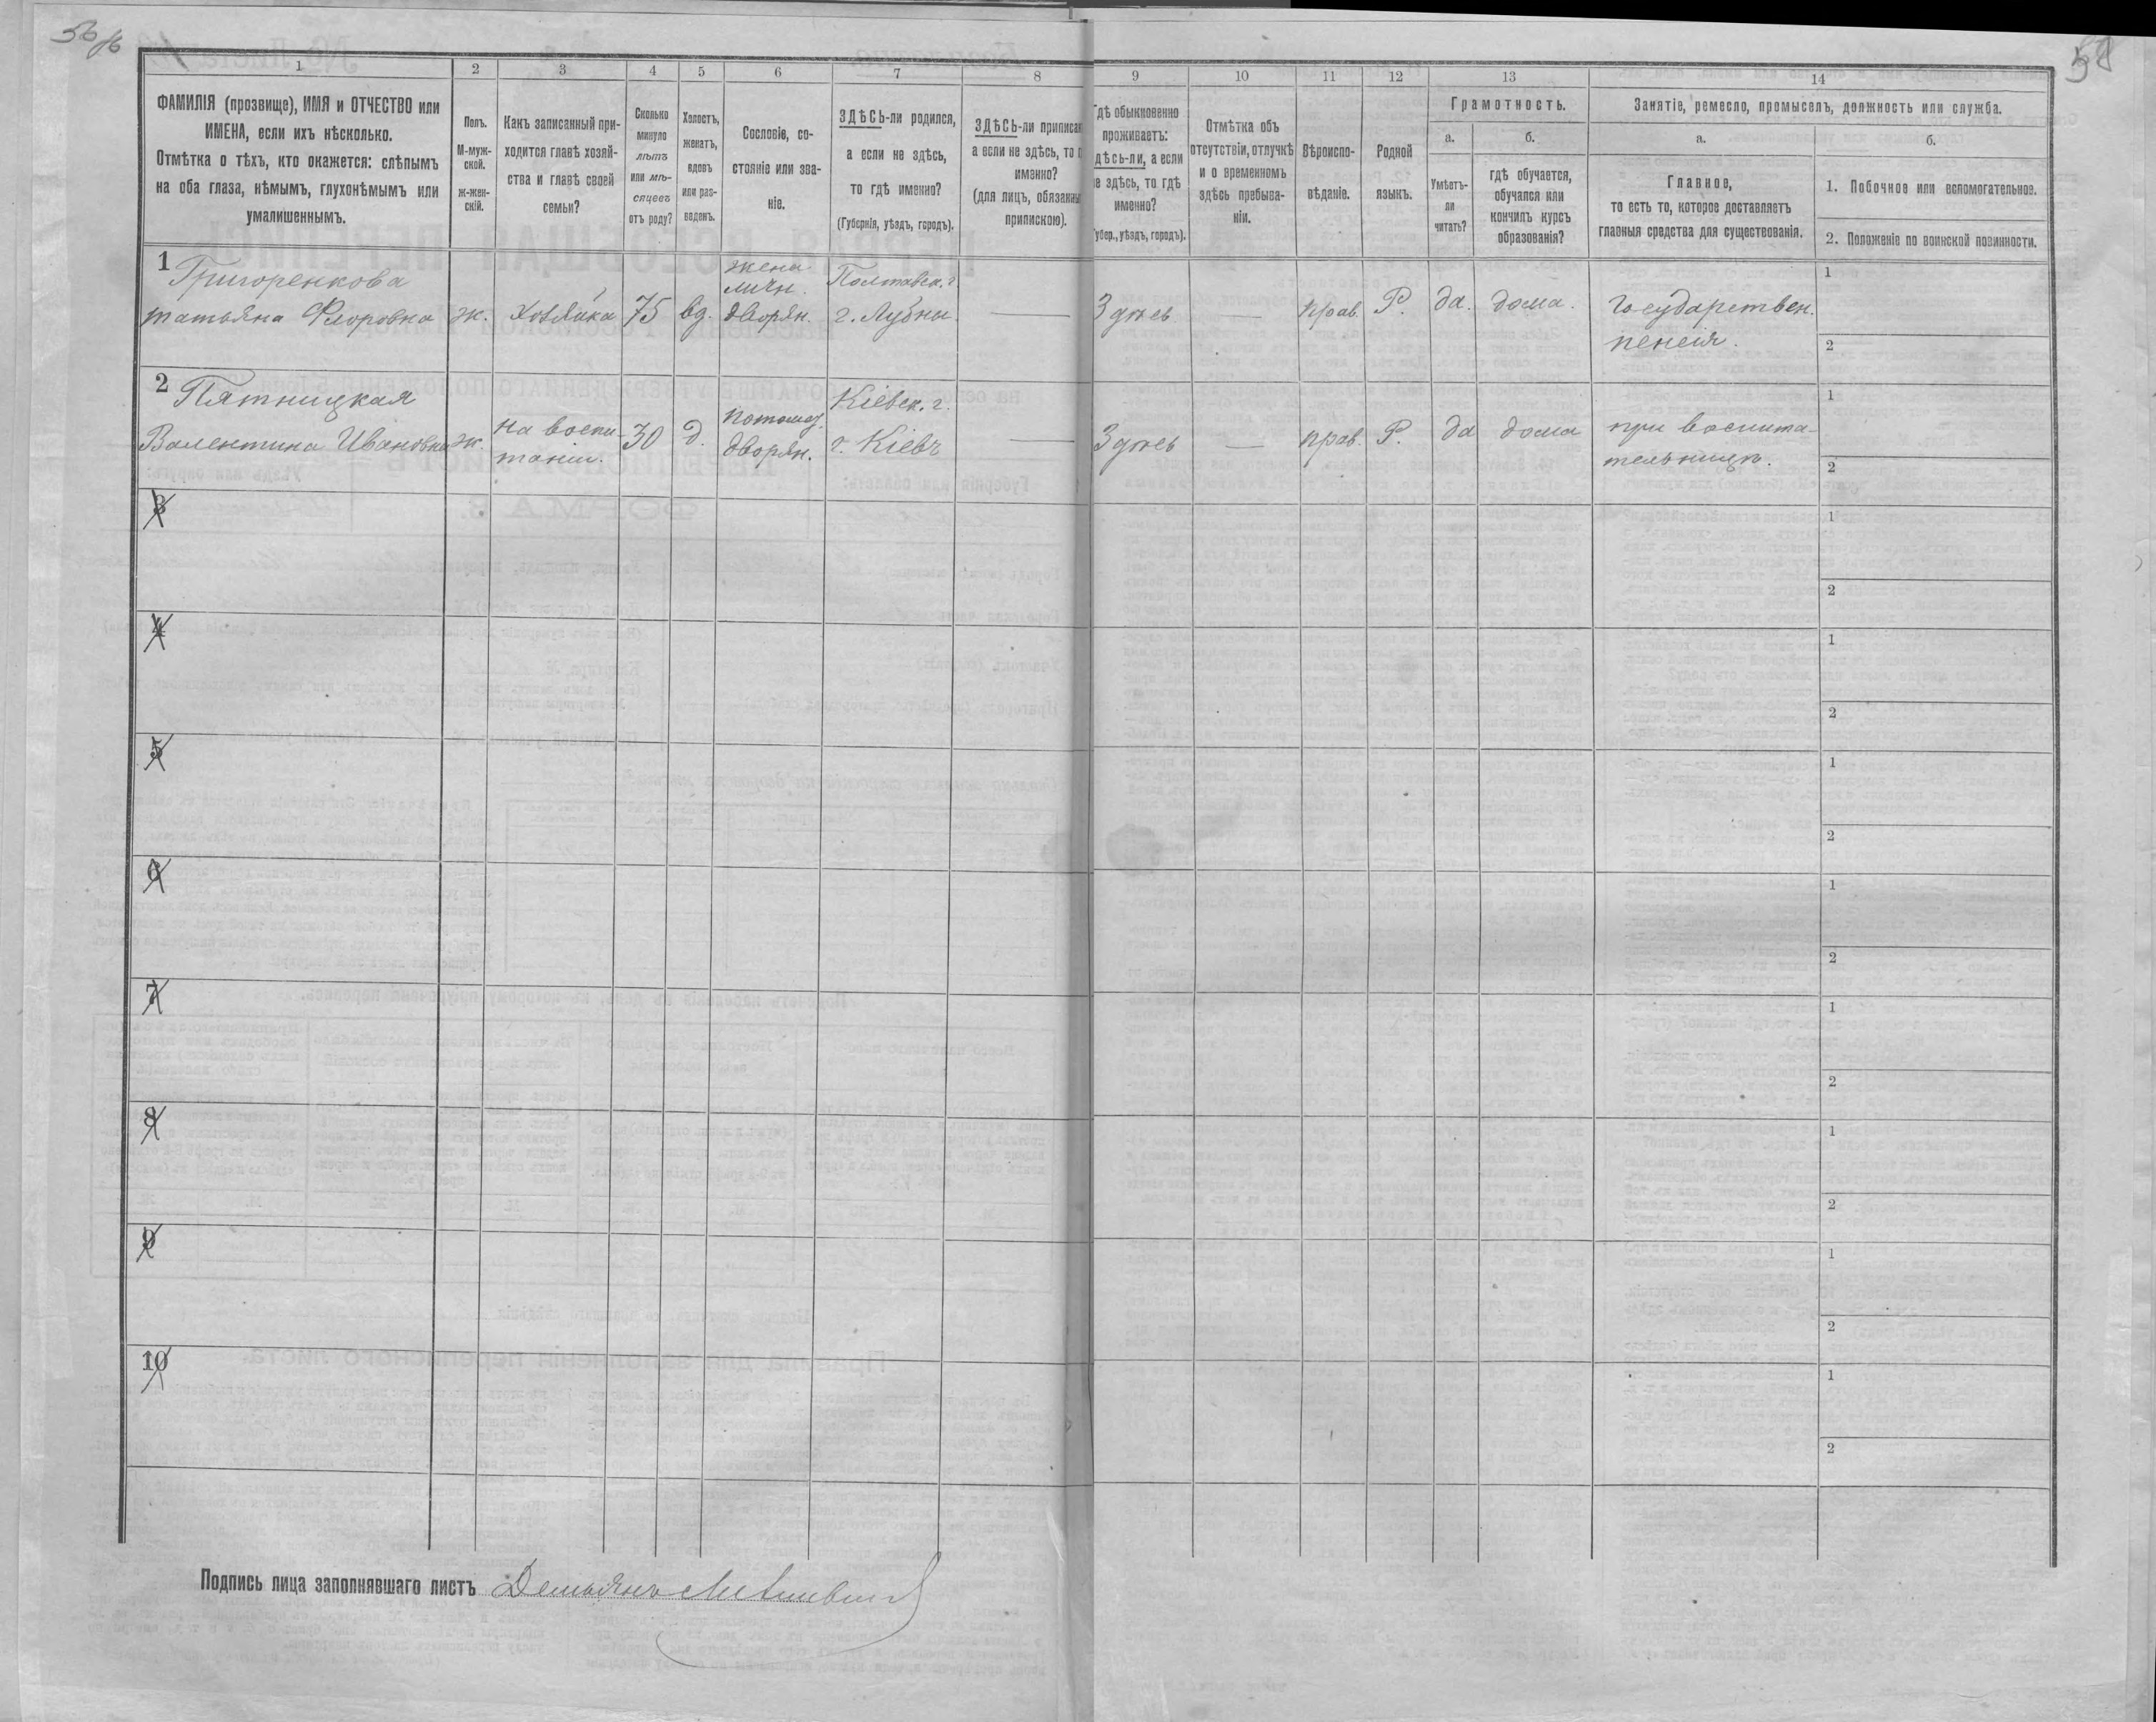 58
1
2
3
4
5
6
7
8
9
10
11
12
13
14
ФАМИЛІЯ (прозвище), ИМЯ и ОТЧЕСТВО или
ИМЕНА, если ихъ нѣсколько.
Отмѣтка о тѣхъ, кто окажется: слѣпымъ
на оба глаза, нѣмымъ, глухонѣмымъ или
умалишеннымъ.
Полъ.
М-муж-
ской.
ж-жен-
скій.
Какъ записанный при-
ходится главѣ хозяй-
ства и главѣ своей
семьи?
Сколько
минуло
лѣтъ
или мѣ-
сяцевъ
отъ роду?
Холостъ,
женатъ,
вдовъ
или раз-
веденъ.
Сословіе, со-
стояніе или зва-
ніе.
ЗДѢСЬ-ли родился,
а если не здѣсь,
то гдѣ именно?
(Губернія, уѣздъ, городъ).
ЗДѢСЬ-ли приписан
а если не здѣсь, то г
именно?
(для лицъ, обязанны
припискою).
гдѣ обыкновенно
проживаетъ:
здѣсь-ли, а если
не здѣсь, то гдѣ
именно?
Губер., уѣздъ, городъ).
Отмѣтка объ
отсутствіи, отлучкѣ
и о временномъ
здѣсь пребыва-
ніи.
Вѣроиспо-
вѣданіе.
Родной
языкъ.
Грамотность.
а.
Умѣетъ-
ли
читать?
б.
гдѣ обучается,
обучался или
кончилъ курсъ
образованія?
Занятіе, ремесло, промыселъ, должность или служба.
а.
Главное,
то есть то, которое доставляетъ
главныя средства для существованія.
б.
1. Побочное или вспомогательное.
2. Положеніе по воинской повинности.
1
Григоренкова
Татьяна Флоровна
ж.
хозяйка
75
вд.
жена
личн.
дворян.
Полтавск. г.
г. Лубны.
Здѣсь
прав.
Р.
да.
дома.
государствен.
пенсія.
1
2
2
Пятницкая
Валентина Ивановна
ж.
на воспи-
таніи.
30
д.
потом.
дворян.
Кіевск. г.
г. Кіевъ
Здѣсь
прав.
Р.
да
дома
при воспита-
тельницѣ.
1
2
3
1
2
4
1
2
5
1
2
6
1
2
7
1
2
8
1
2
9
1
2
10
1
2
Подпись лица заполнявшаго листъ Демьянъ